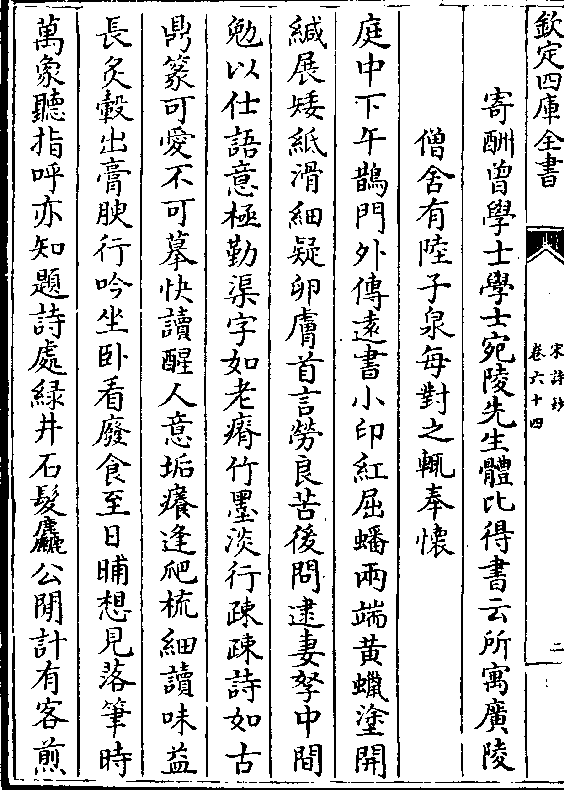 欽定四庫全書
宋詩鈔
卷六十四
二
寄酬曽學士學士宛陵先生體比得書云所寓廣陵
僧舍有陸子泉每對之輒奉懷
庭中下午鵲門外傳遠書小印紅屈蟠兩端黄蠟塗開
緘展矮紙滑細疑卵膚首言勞良苦後問逮妻孥中間
勉以仕語意極勤渠字如老瘠竹墨淡行疎疎詩如古
鼎篆可愛不可摹快讀醒人意垢癢逢爬梳細讀味益
長炙轂出膏腴行吟坐卧看廢食至日晡想見落筆時
萬象聽指呼亦知題詩處緑井石髮麤公閒計有客煎